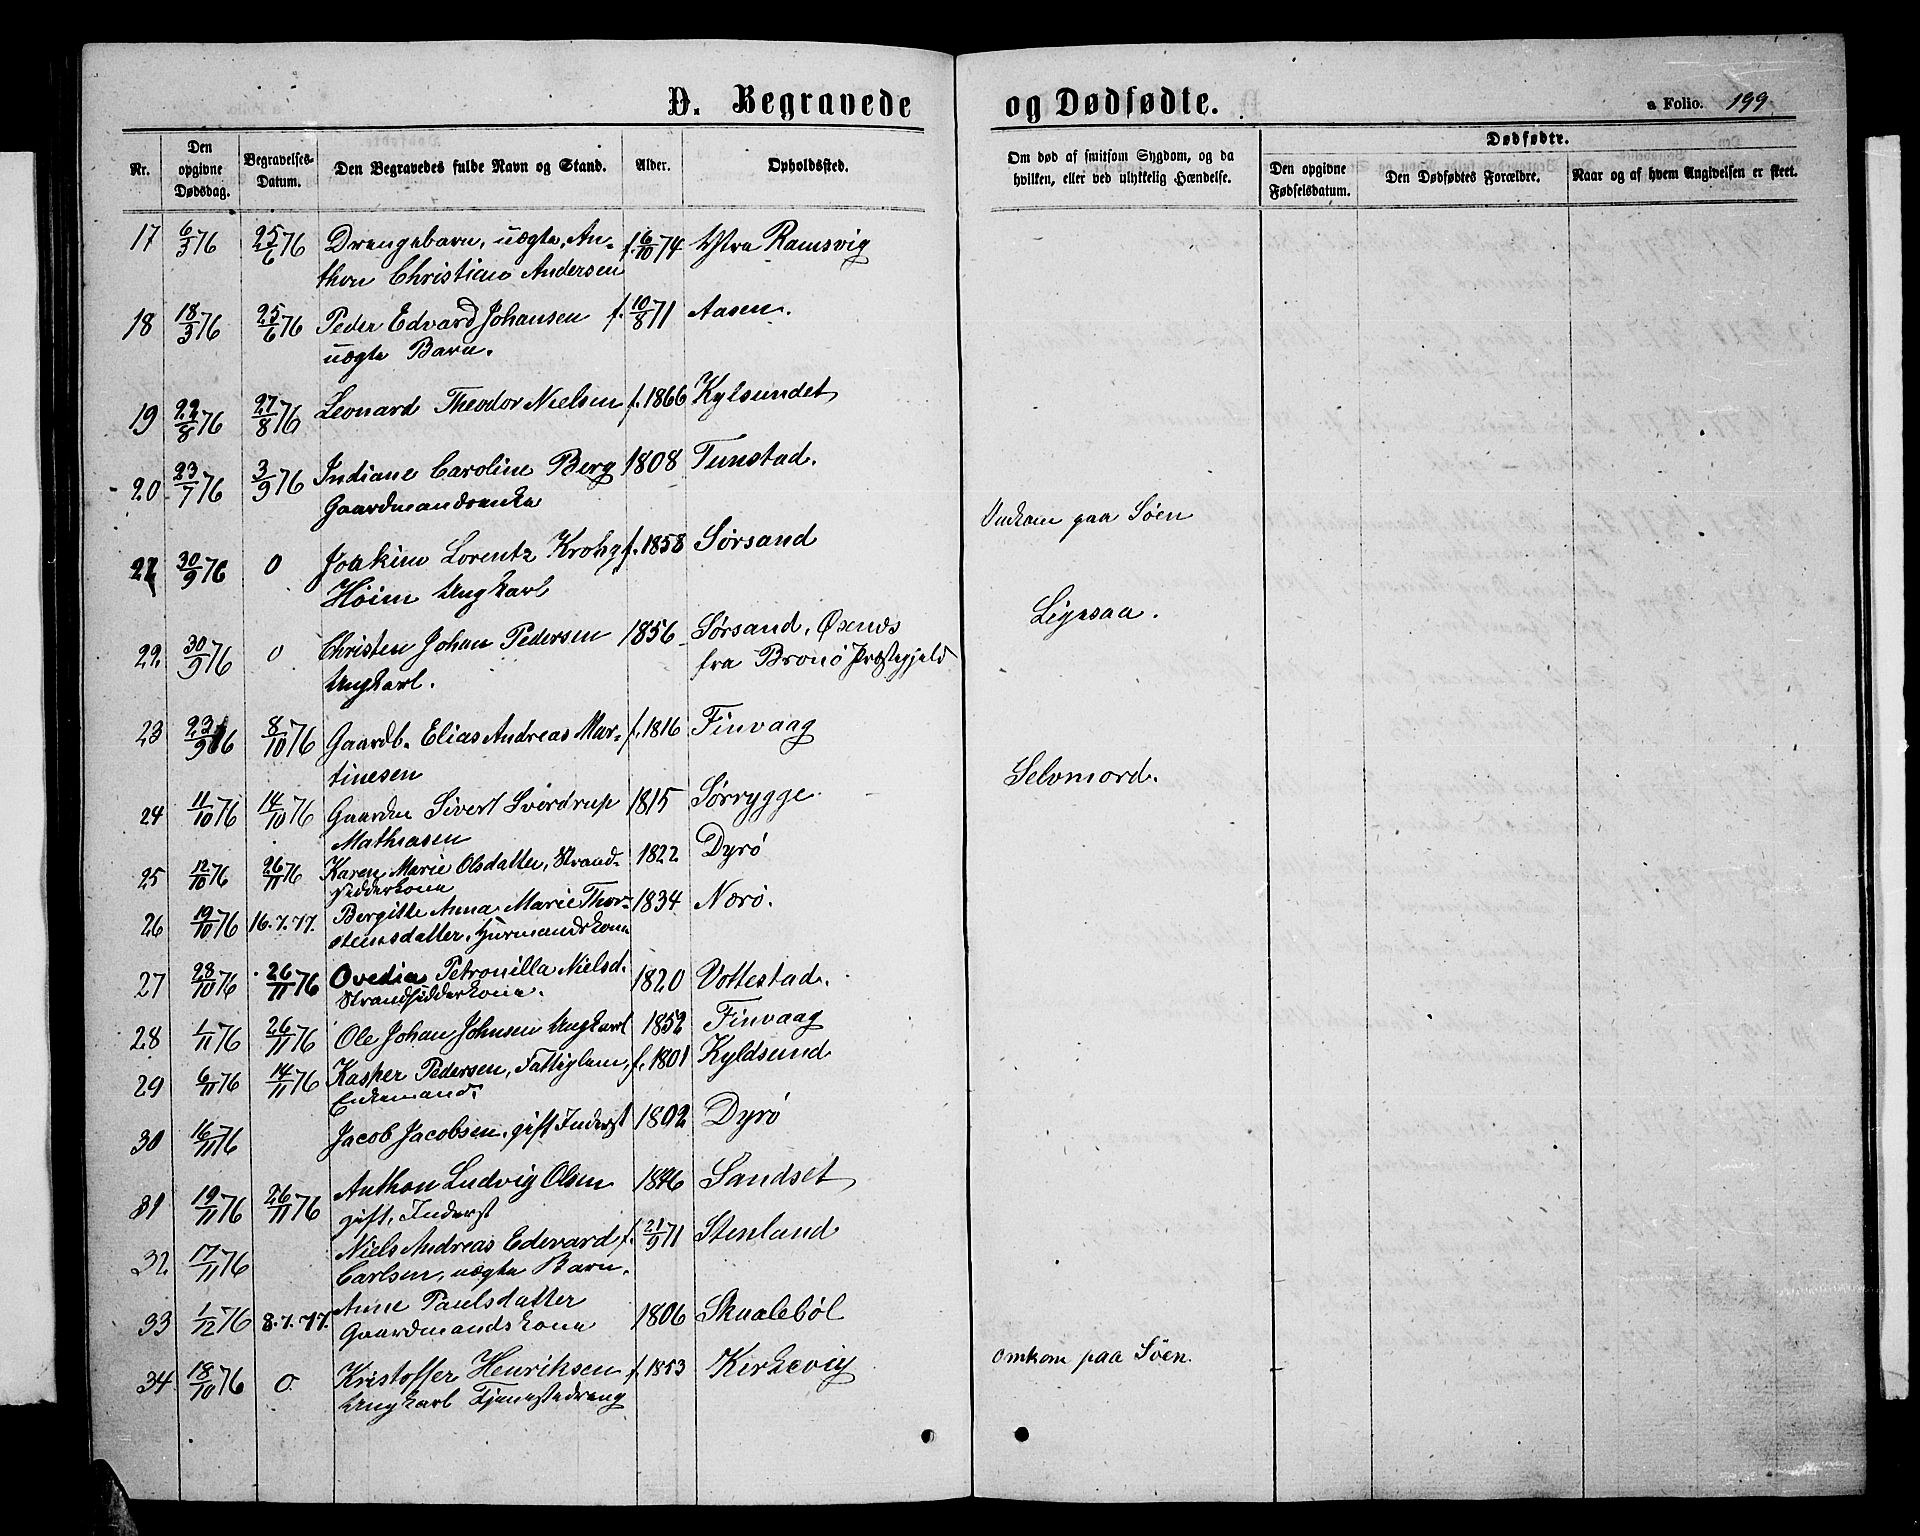 D. Begravede og Dødfødte.
a Folio. 199
Nr. Den opgivne Dødsdag. Begravelses-Datum. Den Begravedes fulde Navn og Stand. Alder. Opholdssted. Om død af smitsom Sygdom, og da hvilken, eller ved ulykkelig Hændelse. Dødfødte. Den opgivne Fødselsdatum. Den Dødfødtes Forældre. Naar og af hvem Angivelsen er skeet.
17 6/3 76 25/6 76 Drengebarn, uægte, An- f. 6/10 74 Ytra Ramsvig
thon Christian Andersen
18 18/3 76 25/6 76 Peder Edvard Johansen f. 10/8 71 Aasen.
uægte Barn.
19 22/8 76 27/8 76 Leonard Theodor Nielsen f. 1866 Kylsundet
20 23/7 76 3/9 76 Indiane Caroline Berg 1808 Tunstad.
Gaardmandsenke
21 30/9 76 0 Joakim Lorentz Krohg f. 1858 Sørsand Omkom paa Søen
Høim Ungkarl
22 30/9 76 0 Christen Johan Pedersen 1856 Sørsand, Øxnæs Ligesaa.
Ungkarl. fra Brønø Præstegjeld
23 23/9 76 8/10 76 Gaardb. Elias Andreas Mar- f. 1816 Finvaag
tinesen
24 11/10 76 14/10 76 Gaardm Sivert Sverdrup 1815 Sørrygge Selvmord.
Mathiasen
25 12/10 76 26/11 76 Karen Marie Olsdatter, Strand- 1822 Dyrø
sidderkone
26 19/10 76 16.7.77. Bergitte Anna Marie Thor- 1834 Nærø.
steinsdatter, Huusmandskone
27 28/10 76 26/11 76 Ovedia Petronilla Nielsd. 1820 Vottestad.
Strandsidderkone.
28 1/11 76 26/11 76 Ole Johan Johnsen Ungkarl 1852 Finvaag
29 6/11 76 14/11 76 Kasper Pedersen, Fattiglem, f. 1801 Kyldsund
Enkemand.
30 16/11 76 Jacob Jacobsen, gift Inderst 1802 Dyrø
31 19/11 76 26/11 76 Anthon Ludvig Olsen 1846 Sandset
gift, Inderst
32 17/11 76 Niels Andreas Edevard f. 21/9 71 Stenland
Carlsen, uægte Barn.
33 1/12 76 8.7.77. Anne Paulsdatter 1806 Skaalebøl
Gaardmandskone
34 18/10 76 0 Kristoffer Henriksen f. 1853 Kirkevig Omkom paa Søen.
Ungkarl Tjenestedreng